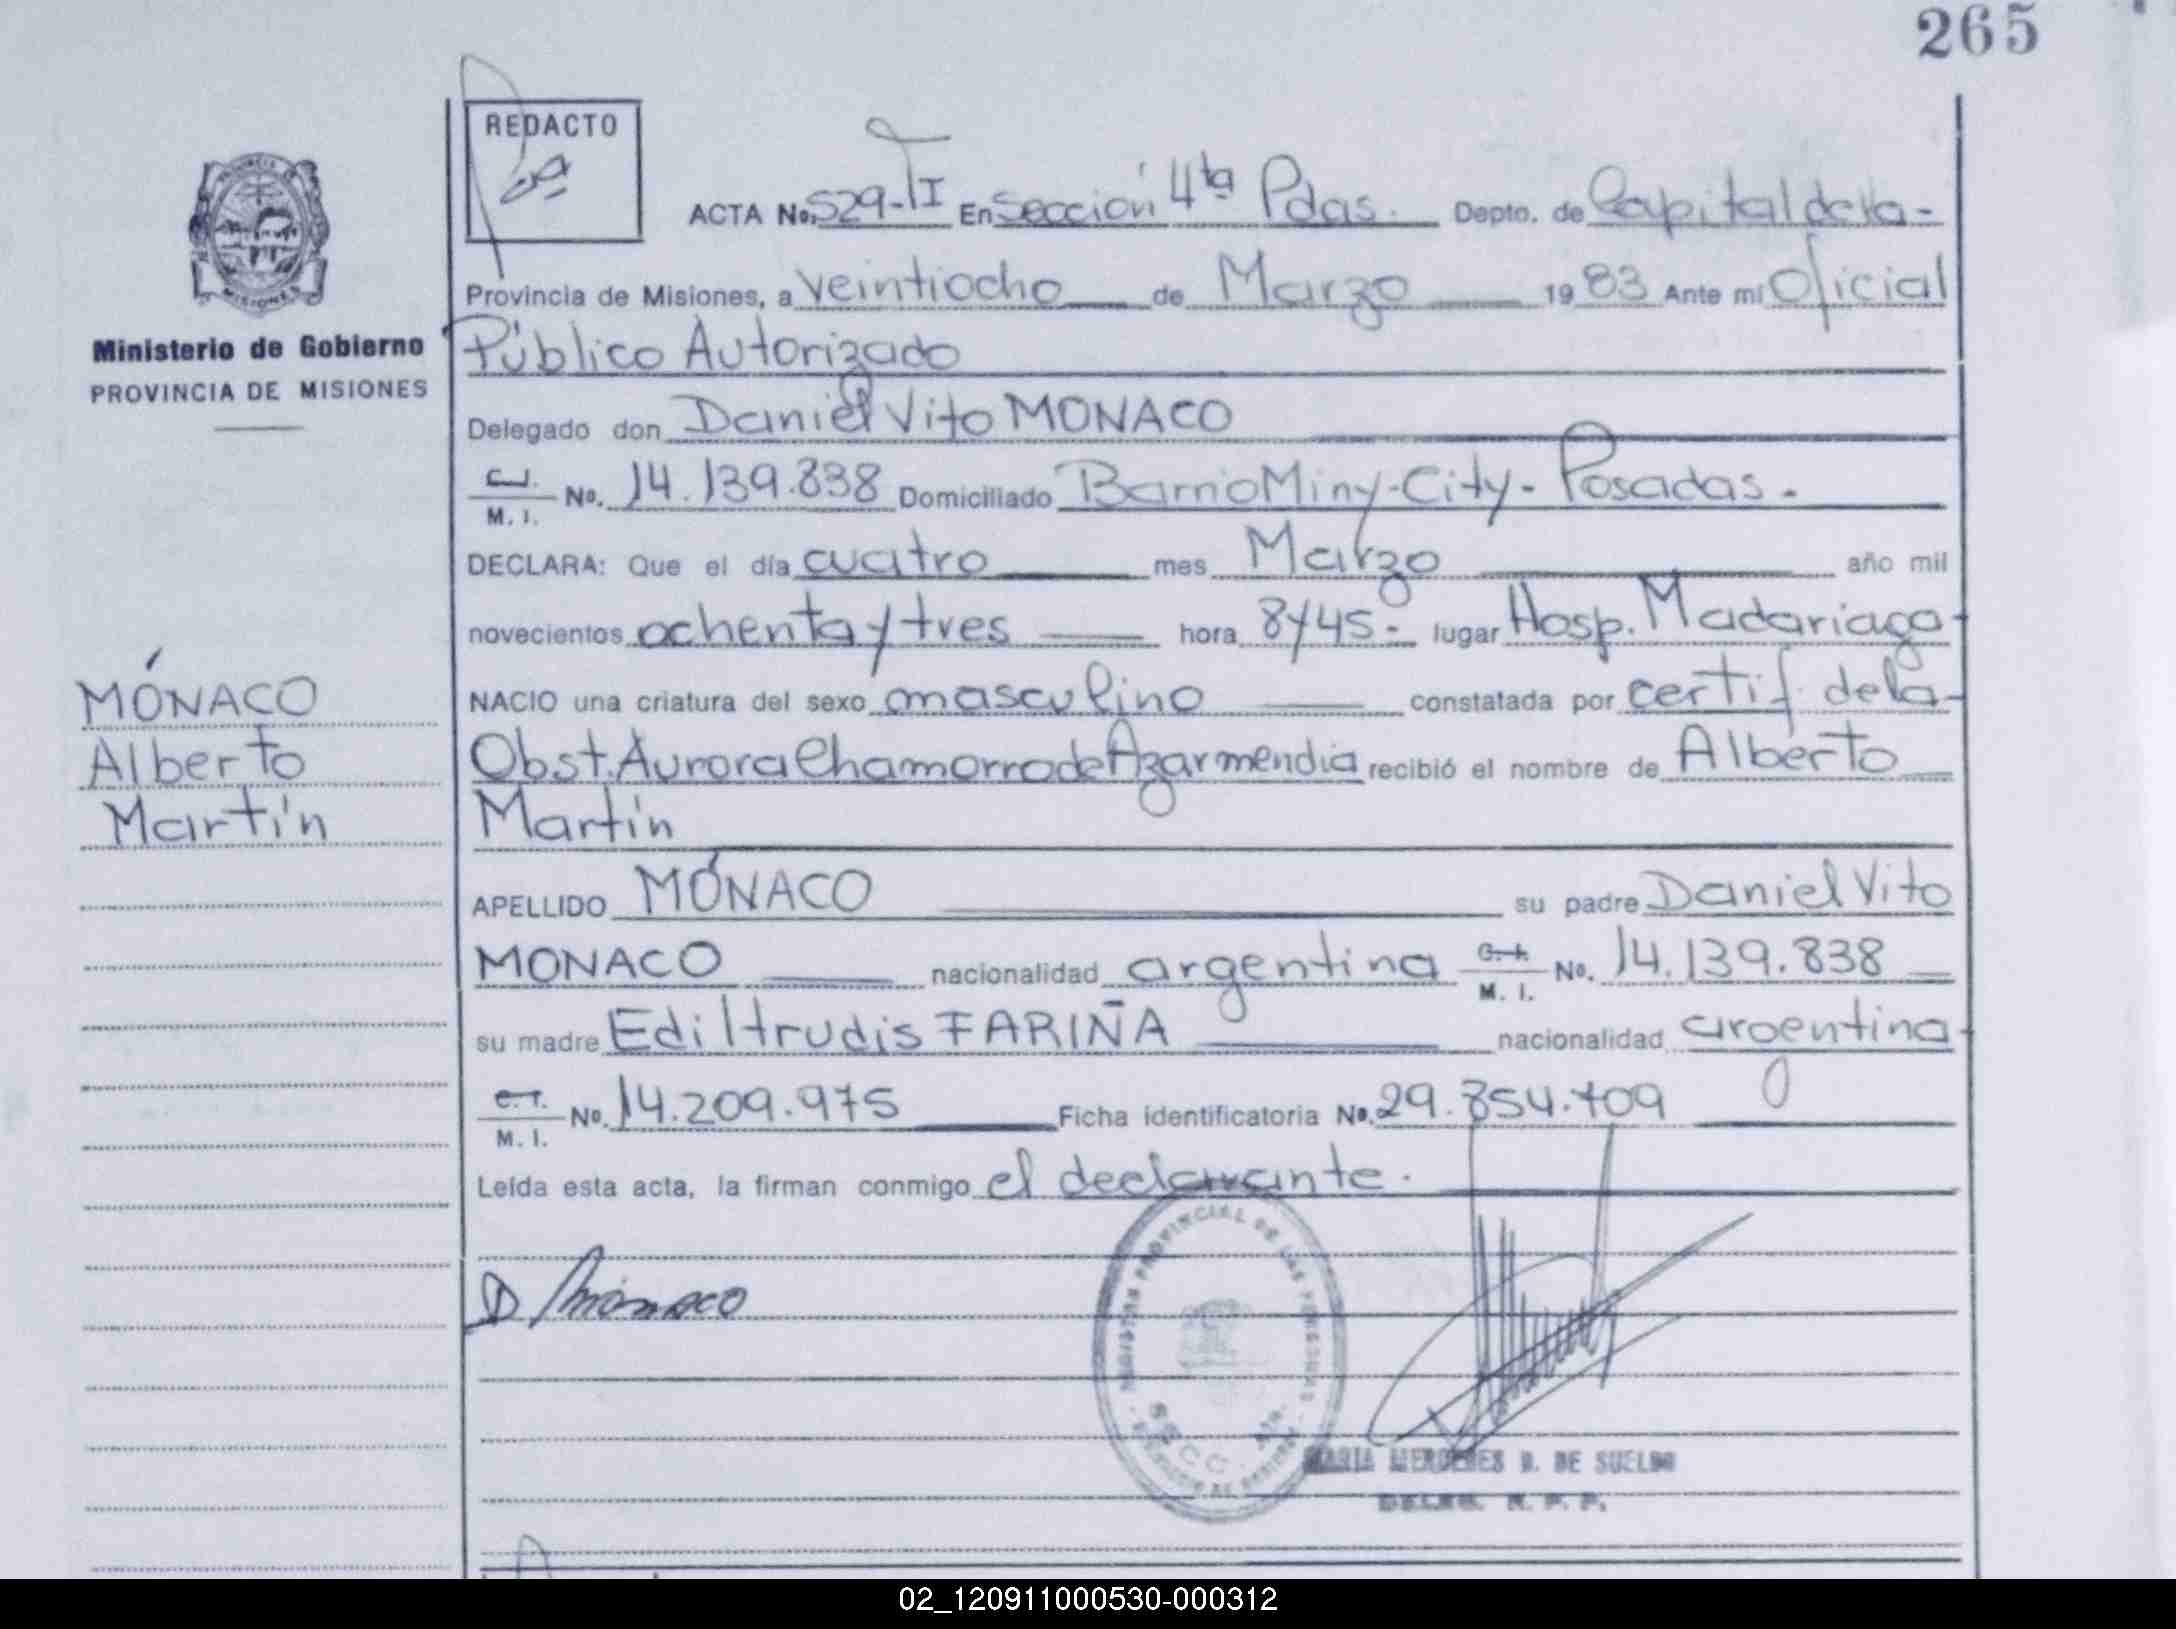 265
REDACTO
PROVINCIA DE
MISIONES
Ministerio de Gobierno
PROVINCIA DE MISIONES
ACTA No. 529-TI En Sección 4ta Pdas. Depto. de Capital de la-
Provincia de Misiones, a veintiocho de Marzo 1983 Ante mí Oficial
Público Autorizado
Delegado don Daniel Vito MONACO
C.I.
M. I. No. 14.139.838 Domiciliado Barrio Miny-City- Posadas.-
DECLARA: Que el día cuatro mes Marzo año mil
novecientos ochenta y tres hora 8y45.- lugar Hosp. Madariaga-
NACIO una criatura del sexo masculino constatada por certif. de la-
Obst. Aurora Chamorro de Azarmendia recibió el nombre de Alberto
Martín
APELLIDO MÓNACO su padre Daniel Vito
MONACO nacionalidad argentina C.I.
M. I. No. 14.139.838
su madre Ediltrudis FARIÑA nacionalidad argentina-
C.I.
M. I. No. 14.209.975 Ficha identificatoria No. 29.854.709
Leída esta acta, la firman conmigo el declarante.
MÓNACO
Alberto
Martín
D Mónaco
REGISTRO PROVINCIAL DE LAS PERSONAS
SECC. 4ta
MARIA MERCEDES D. DE SUELDO
DELEG. R. P. P.
02_120911000530-000312